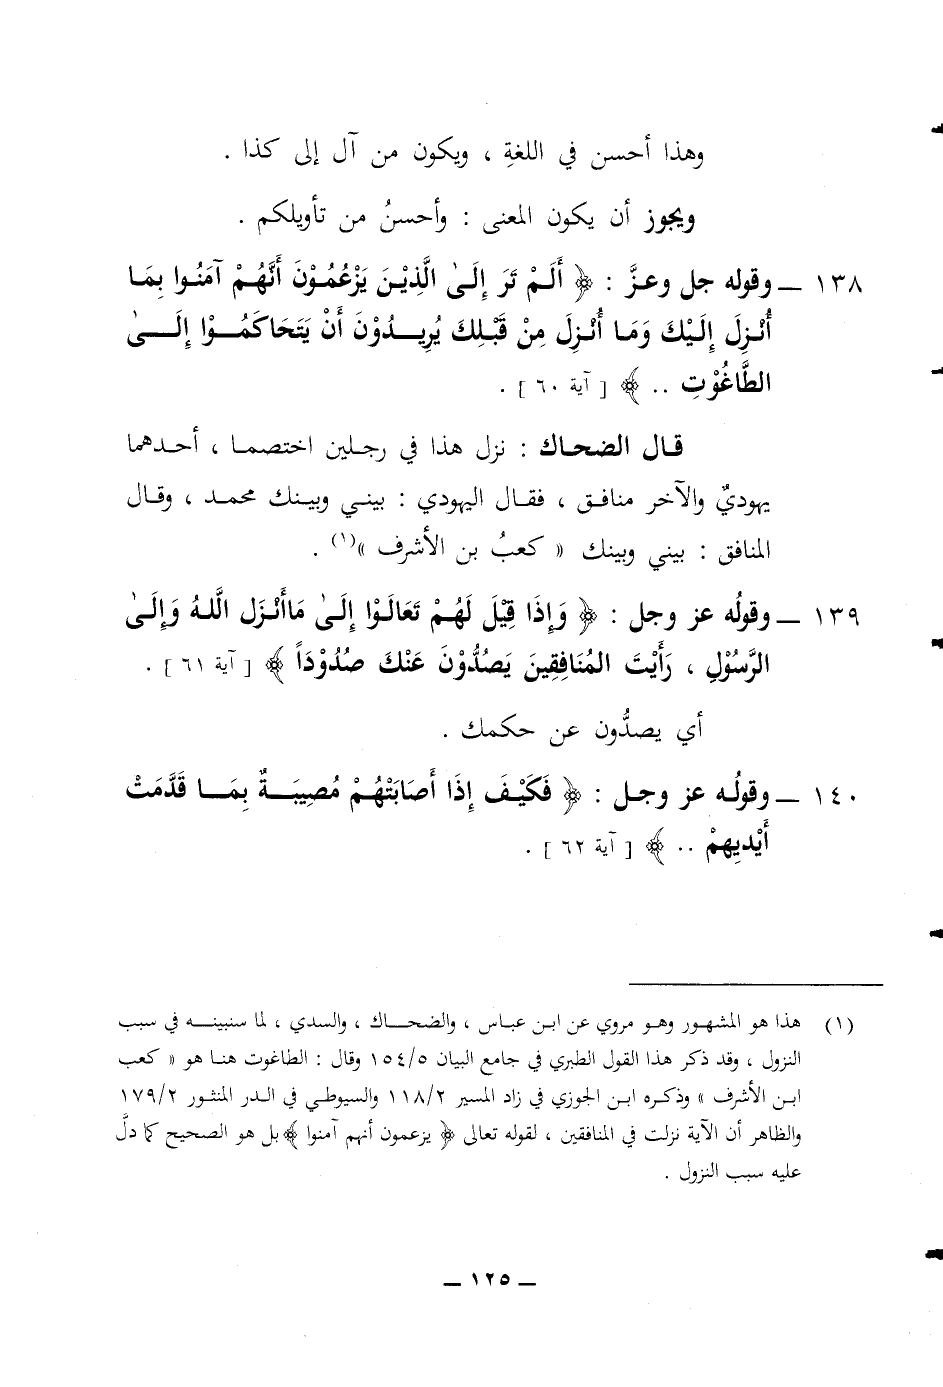 وهذا أحسن في اللغةِ ، ويكون من آل إلى كذا .
ويجوز أن يكون المعنى : وأحسنُ من تأويلكم .
١٣٨ ــ وقوله جل وعزَّ : ﴿ أَلَمْ تَرَ إِلَىٰ الَّذِيْنَ يَزْعُمُوْنَ أَنَّهُمْ آمَنُوا بِمَا
أُنْزِلَ إِلَيْكَ وَمَا أُنْزِلَ مِنْ قَبْلِكَ يُرِيدُوْنَ أَنْ يَتَحَاكَمُوْا إِلَىٰ
الطَّاغُوْتِ .. ﴾ [ آية ٦٠ ] .
قال الضحاك : نزل هذا في رجلين اختصما ، أحدهما
يهوديٌ والآخر منافق ، فقال اليهودي : بيني وبينك محمد ، وقال
المنافق : بيني وبينك « كعبُ بن الأشرف »(١) .
١٣٩ ــ وقولُه عز وجل : ﴿ وَإِذَا قِيْلَ لَهُمْ تَعَالَوْا إِلَىٰ مَاأَنْزَل اللَّهُ وَإِلَىٰ
الرَّسُوْلِ ، رَأَيْتَ المُنَافِقِينَ يَصُدُّوْنَ عَنْكَ صُدُوْدَاً ﴾ [ آية ٦١ ] .
أي يصدُّون عن حكمك .
١٤٠ ــ وقولُه عز وجل : ﴿ فَكَيْفَ إِذَا أَصَابَتْهُمْ مُصِيبَةٌ بِمَا قَدَّمَتْ
أَيْدِيهِمْ .. ﴾ [ آية ٦٢ ] .
(١) هذا هو المشهور وهو مروي عن ابن عباس ، والضحاك ، والسدي ، لما سنبينه في سبب
النزول ، وقد ذكر هذا القول الطبري في جامع البيان ١٥٤/٥ وقال : الطاغوت هنا هو « كعب
ابن الأشرف » وذكره ابن الجوزي في زاد المسير ١١٨/٢ والسيوطي في الدر المنثور ١٧٩/٢
والظاهر أن الآية نزلت في المنافقين ، لقوله تعالى ﴿ يزعمون أنهم آمنوا ﴾ بل هو الصحيح كما دلَّ
عليه سبب النزول .
ــ ١٢٥ ــ